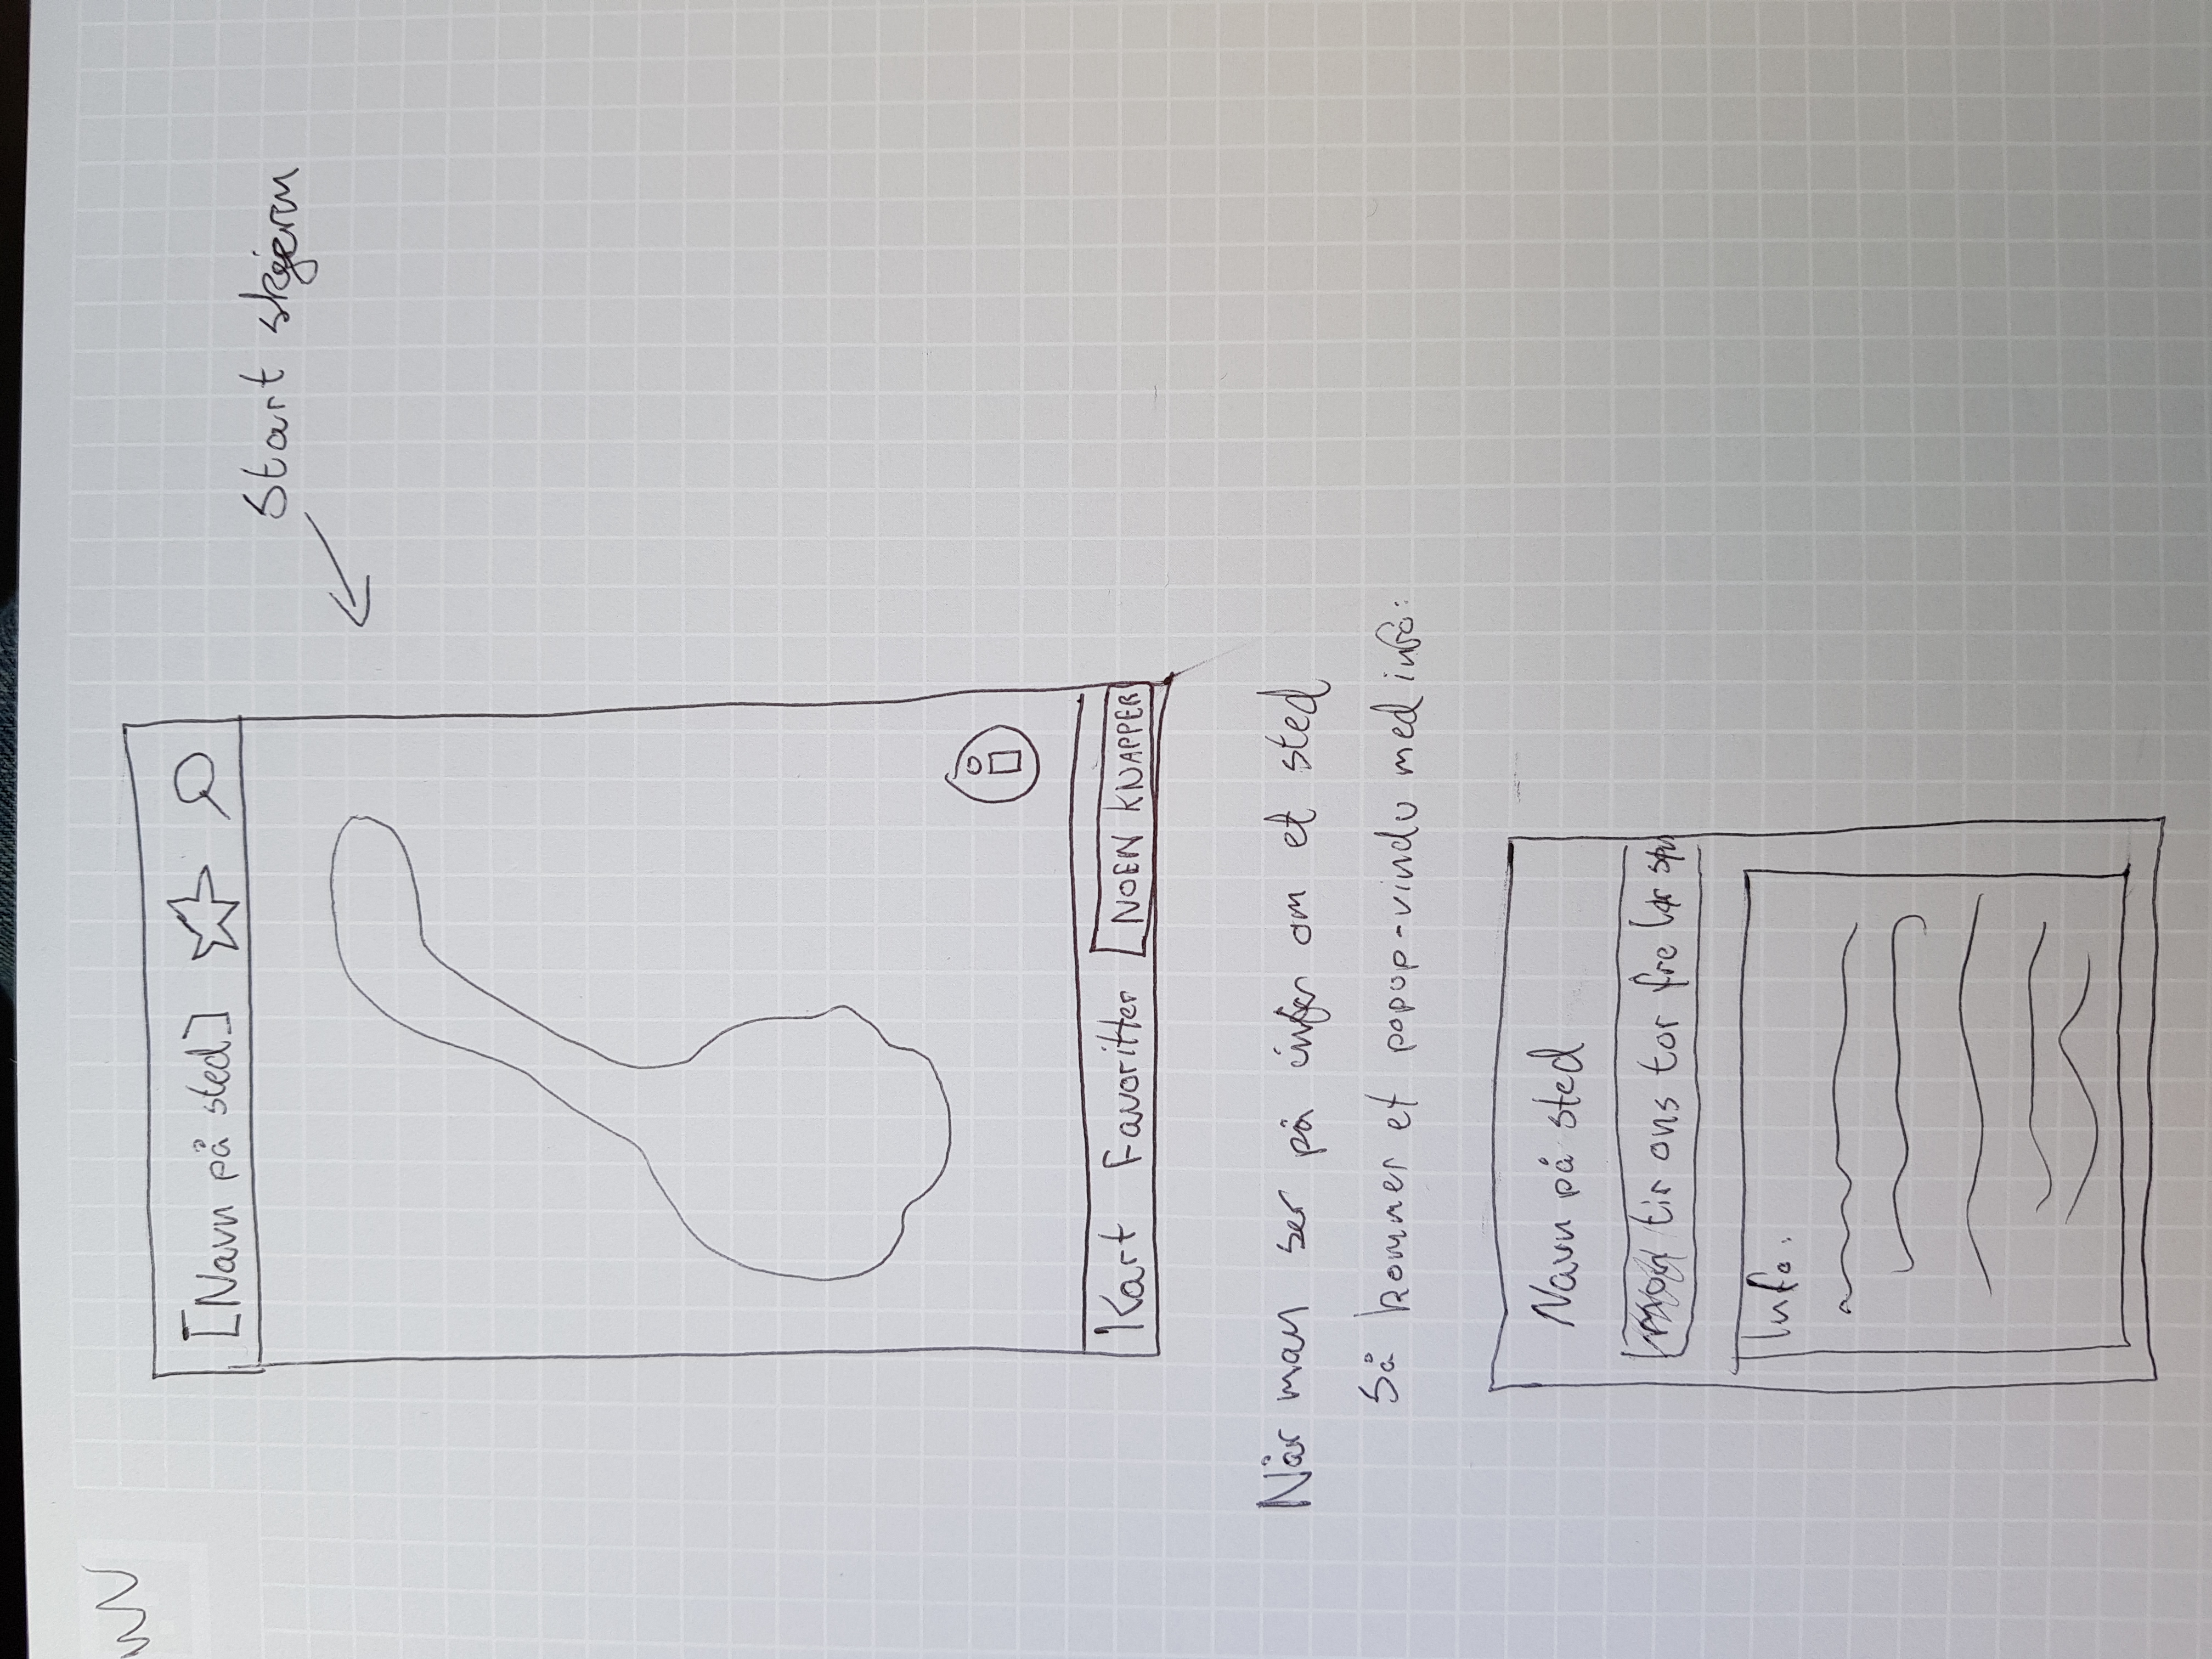 [Navn på sted]
Start skjerm
Kart Favoritter NOEN KNAPPER
Når man ser på infor om et sted
Så kommer et popup-vindu med info:
Navn på sted
mon tir ons tor fre lør søn
Info: